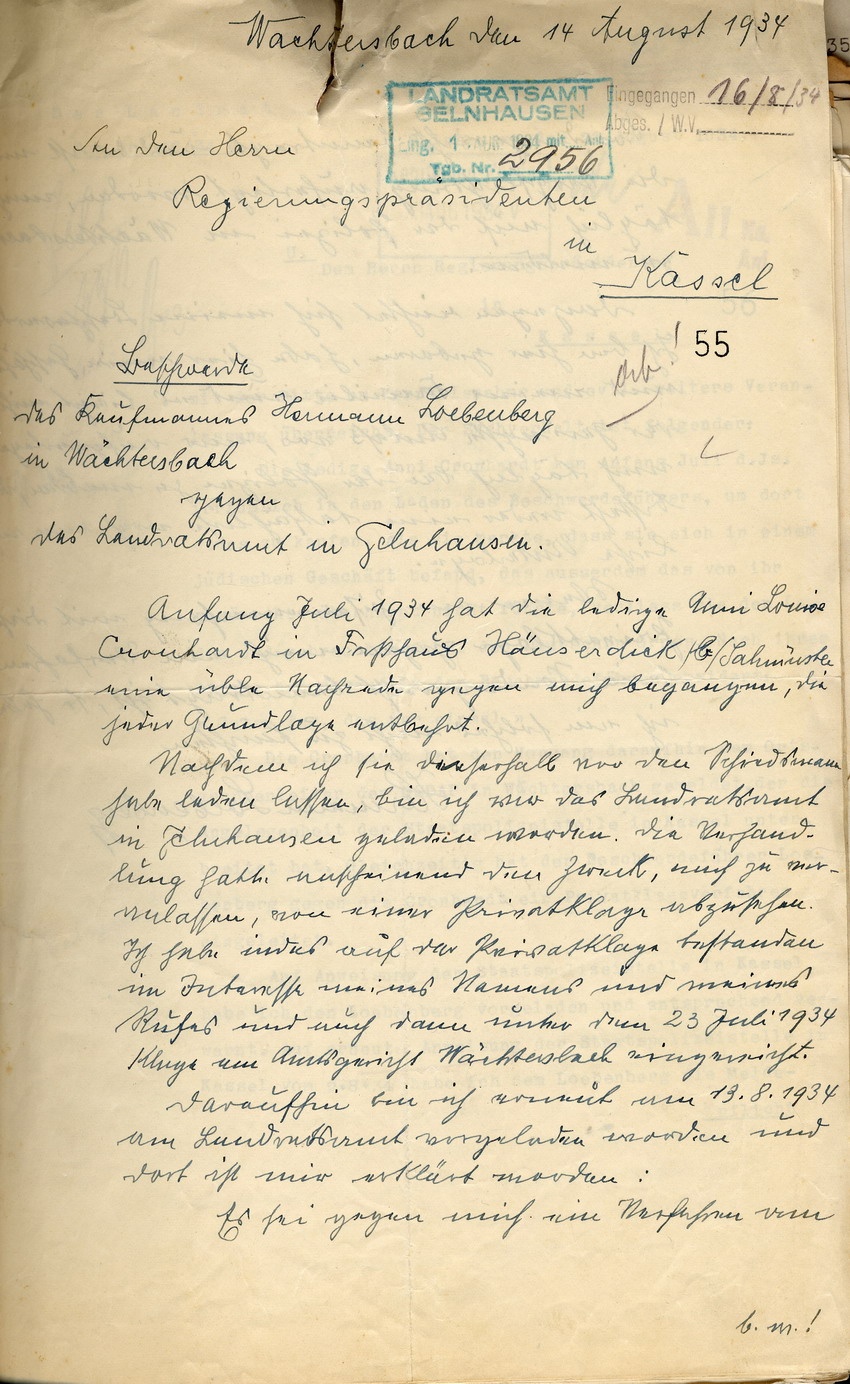 Wächtersbach den 14 August 1934
35
LANDRATSAMT
GELNHAUSEN
Eing. 1 AUG. 1934 mit Anl.
Tgb. Nr. 2956
Eingegangen 16/8/34
Abges. / W.V.
An den Herrn
Regierungspräsidenten
in
Kassel
55
Beschwerde
des Kaufmannes Hermann Loebenberg
in Wächtersbach
gegen
das Landratsamt in Gelnhausen.
Anfang Juli 1934 hat die ledige Anni Louise
Cronhardt in Forsthaus Häuserdick b/Salmünster
eine üble Nachrede gegen mich begangen, die
jeder Grundlage entbehrt.
Nachdem ich sie dieserhalb vor den Schiedsmann
habe laden lassen, bin ich vor das Landratsamt
in Gelnhausen geladen worden. Die Verhand-
lung hatte anscheinend den Zweck, mich zu ver-
anlassen, von einer Privatklage abzusehen.
Ich habe indes auf der Privatklage bestanden
im Interesse meines Namens und meines
Rufes und auch dann unter dem 23 Juli 1934
Klage am Amtsgericht Wächtersbach eingereicht.
Daraufhin bin ich erneut am 13.8.1934
am Landratsamt vorgeladen worden und
dort ist mir erklärt worden:
Es sei gegen mich ein Verfahren vom
b. w.!